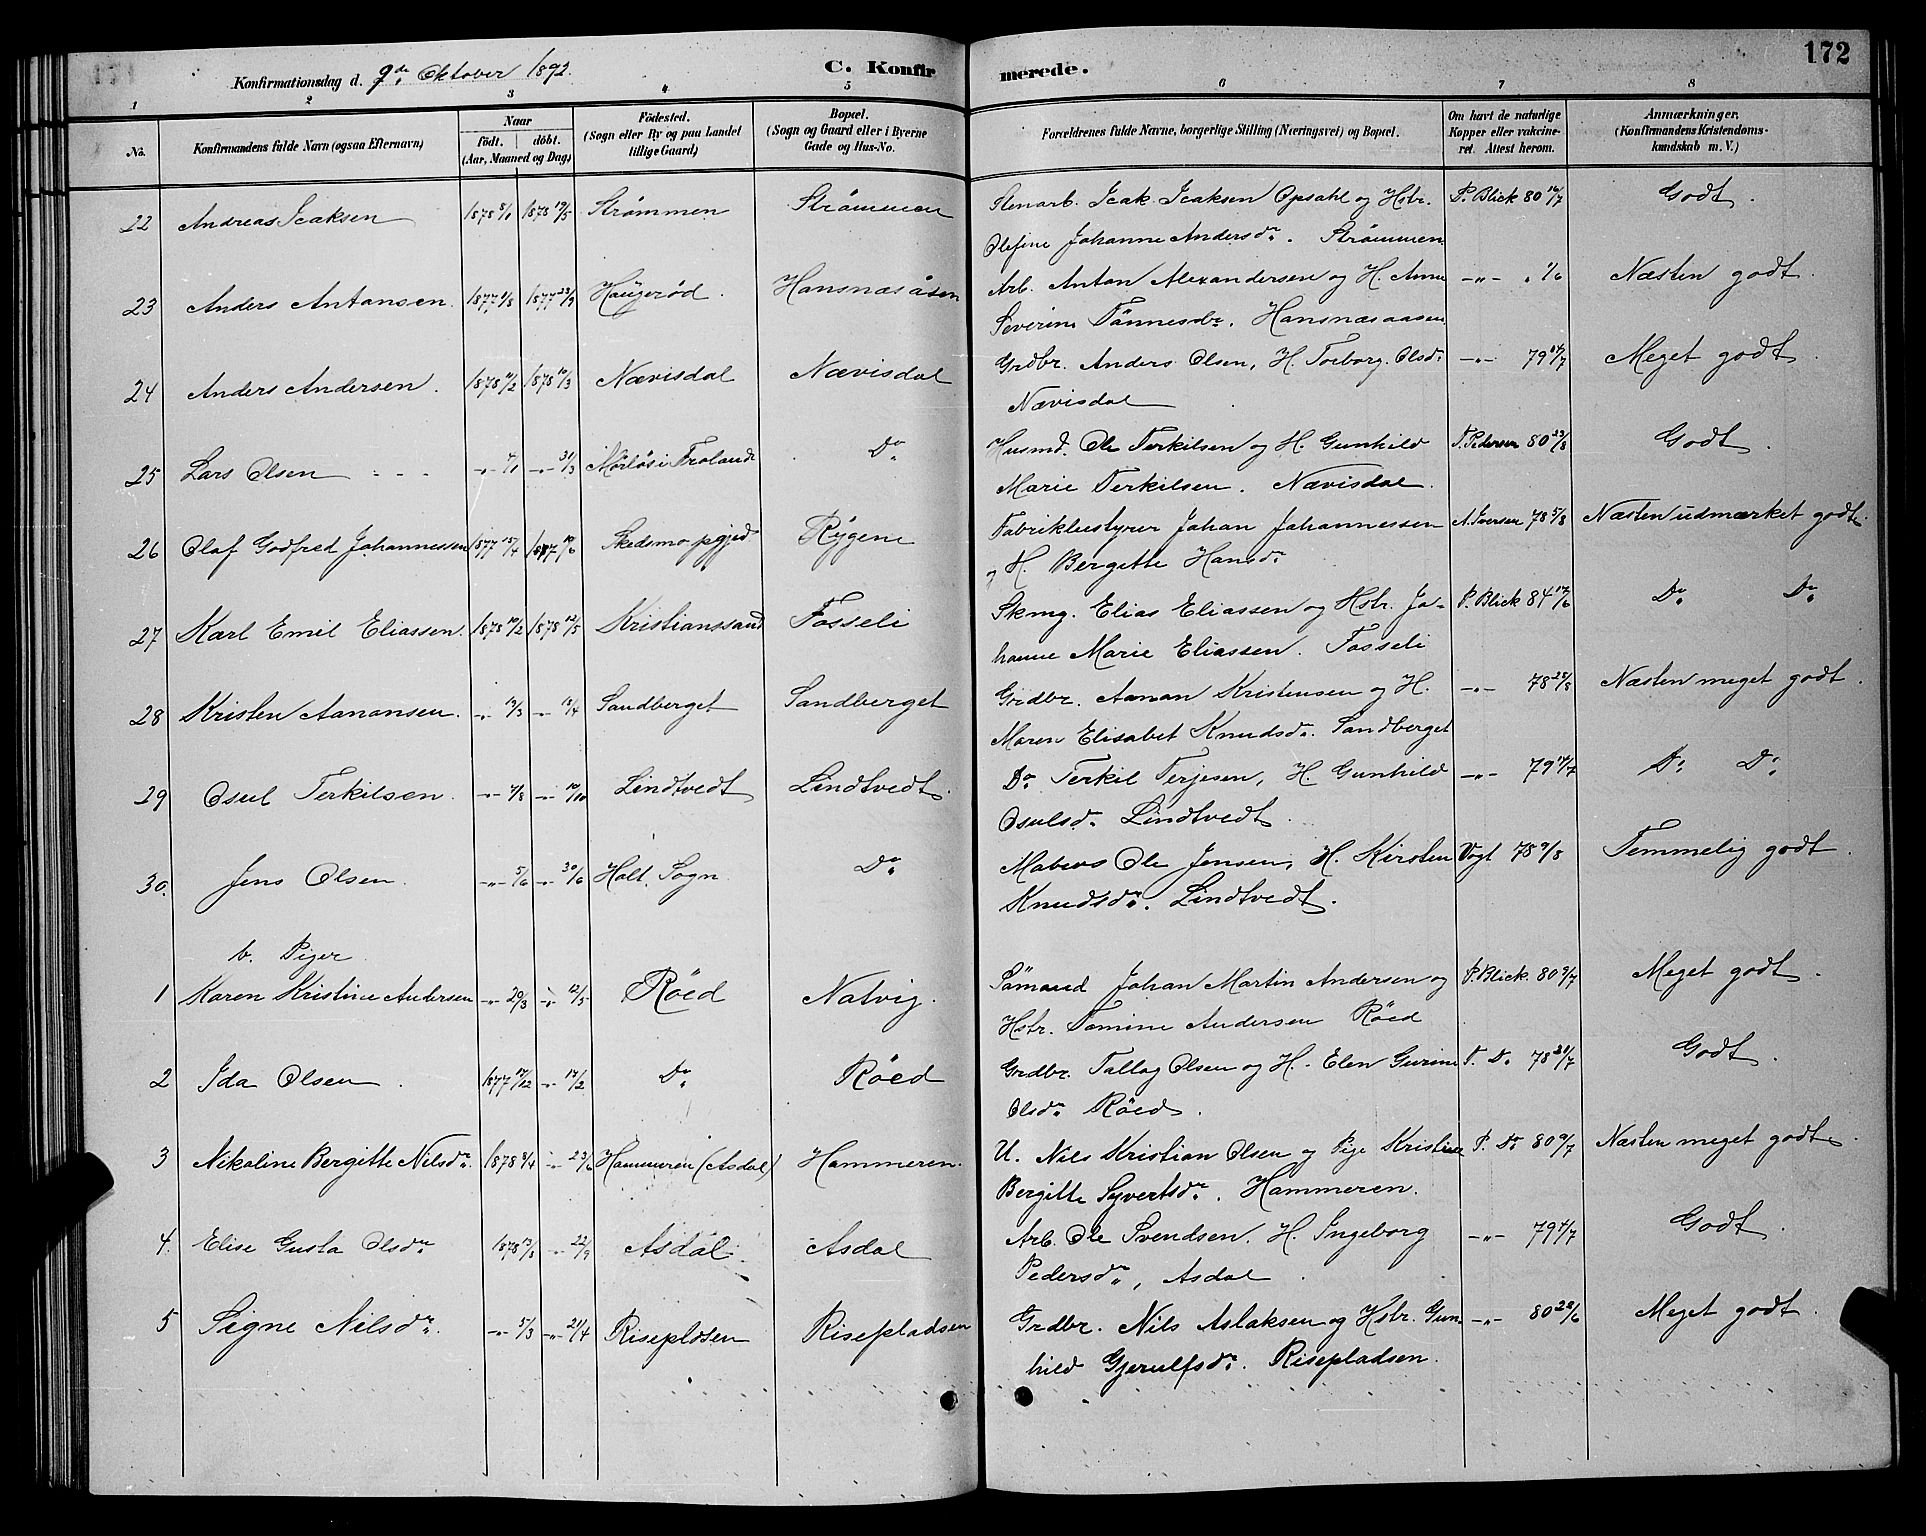 172
Konfirmationsdag d. 9de Oktober 1892.
C. Konfirmerede.
1 2 3 4 5 6 7 8
No. Konfirmandens fulde Navn (ogsaa Efternavn) Naar födt. döbt. (Aar, Maaned og Dag) Födested. (Sogn eller By og paa Landet tillige Gaard) Bopæl. (Sogn og Gaard eller i Byerne Gade og Hus-No. Forældrenes fulde Navne, borgerlige Stilling (Næringsvei) og Bopæl. Om havt de naturlige Kopper eller vakcineret. Attest herom. Anmærkninger. (Konfirmandens Kristendomskundskab m. V.)
22 Andreas Isaksen 1878 5/1 1878 19/5 Strømmen Strømmen Stenarb. Isak Isaksen Opsahl og Hstr. P. Blick 80 16/7 Godt.
Olefine Johanne Andersdr. Strømmen
23 Anders Antonsen. 1877 1/8 1877 23/9 Haugerød. Hansnæsåsen Arb. Anton Alexandersen og H. Anne -"- " 1/6 Næsten godt.
Severine Tønnesdr. Hansnæsaasen
24 Anders Andersen. 1878 4/2 1878 10/3 Nævisdal Nævisdal Grdbr. Anders Olsen, H. Torborg Olsdr. -"- 79 14/7 Meget godt.
Nævisdal
25 Lars Olsen -"- 4/1 -"- 31/3 Mørløs i Froland Do. Husmd. Ole Terkilsen og H. Gunhild T. Pedersen 80 23/8 Godt.
Marie Terkilsen. Nævisdal.
26 Olaf Godfred Johannessen 1877 15/4 1877 10/6 Skedsmo pgjd Rygene Fabrikbestyrer Johan Johannessen A. Iversen 78 5/8 Næsten udmærket godt.
og H. Bergitte Hansdr
27 Karl Emil Eliassen. 1878 10/2 1878 12/5 Kristianssand Fosseli Skmg. Elias Eliassen og Hstr. Jo- P. Blick 84 17/6 Do. Do.
hanne Marie Eliassen. Fosseli
28 Kristen Aanonsen. -"- 13/3 -"- 15/4 Sandberget Sandberget Grdbr. Aanon Kristensen og H. -"- 78 25/8 Næsten meget godt.
Maren Elisabet Knudsdr. Sandberget
29 Osul Terkilsen -"- 7/8 -"- 10/10 Lindtvedt Lindtvedt. Do Terkil Terjesen, H. Gunhild -"- 79 14/7 Do. Do.
Osulsdr. Lindtvedt.
30. Jens Olsen. -"- 5/6 -"- 30/6 Holt Sogn Do. Ole Jensen, H. Kirsten Vogt 78 9/8 Temmelig godt.
Knudsdr. Lindtvedt.
b. Piger
1 Karen Kristine Andersen -"- 20/3 -"- 12/5 Röed Natvig. Sömand Johan Martin Andersen og P. Blick. 80 9/7 Meget godt.
Hstr. Tomine Andersen Röed
2 Ida Olsen. 1877 17/12 -"- 17/2 Do. Röed Grdbr. Tallag Olsen og H. Elen Gurine T. Do. 78 31/7 Godt.
Olsdr. Röed.
3 Nikoline Bergitte Nilsdr. 1878 8/4 -"- 23/6 Hammeren (Asdal) Hammeren. U. Nils Kristian Olsen og Pige Kristine P. Do 80 9/7 Næsten meget godt.
Bergitte Syvertsdr. Hammeren.
4. Elise Gusta Olsdr. 1878 13/8 -"- 22/9 Asdal Asdal Arb. Ole Svendsen. H. Ingeborg -"- 79 4/7 Godt.
Pedersdr, Asdal.
5 Signe Nilsdr. -"- 5/3 -"- 21/4 Riseplasen Risepladsen Grdbr. Nils Aslaksen og Hstr. Gun- -"- 80 28/6 Meget godt.
hild Gjerulfsdr. Risepladsen.